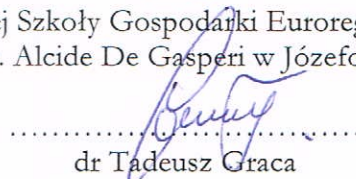 j Szkoły Gospodarki Euroreg
. Alcide De Gasperi w Józefo
........................................
dr Tadeusz Graca